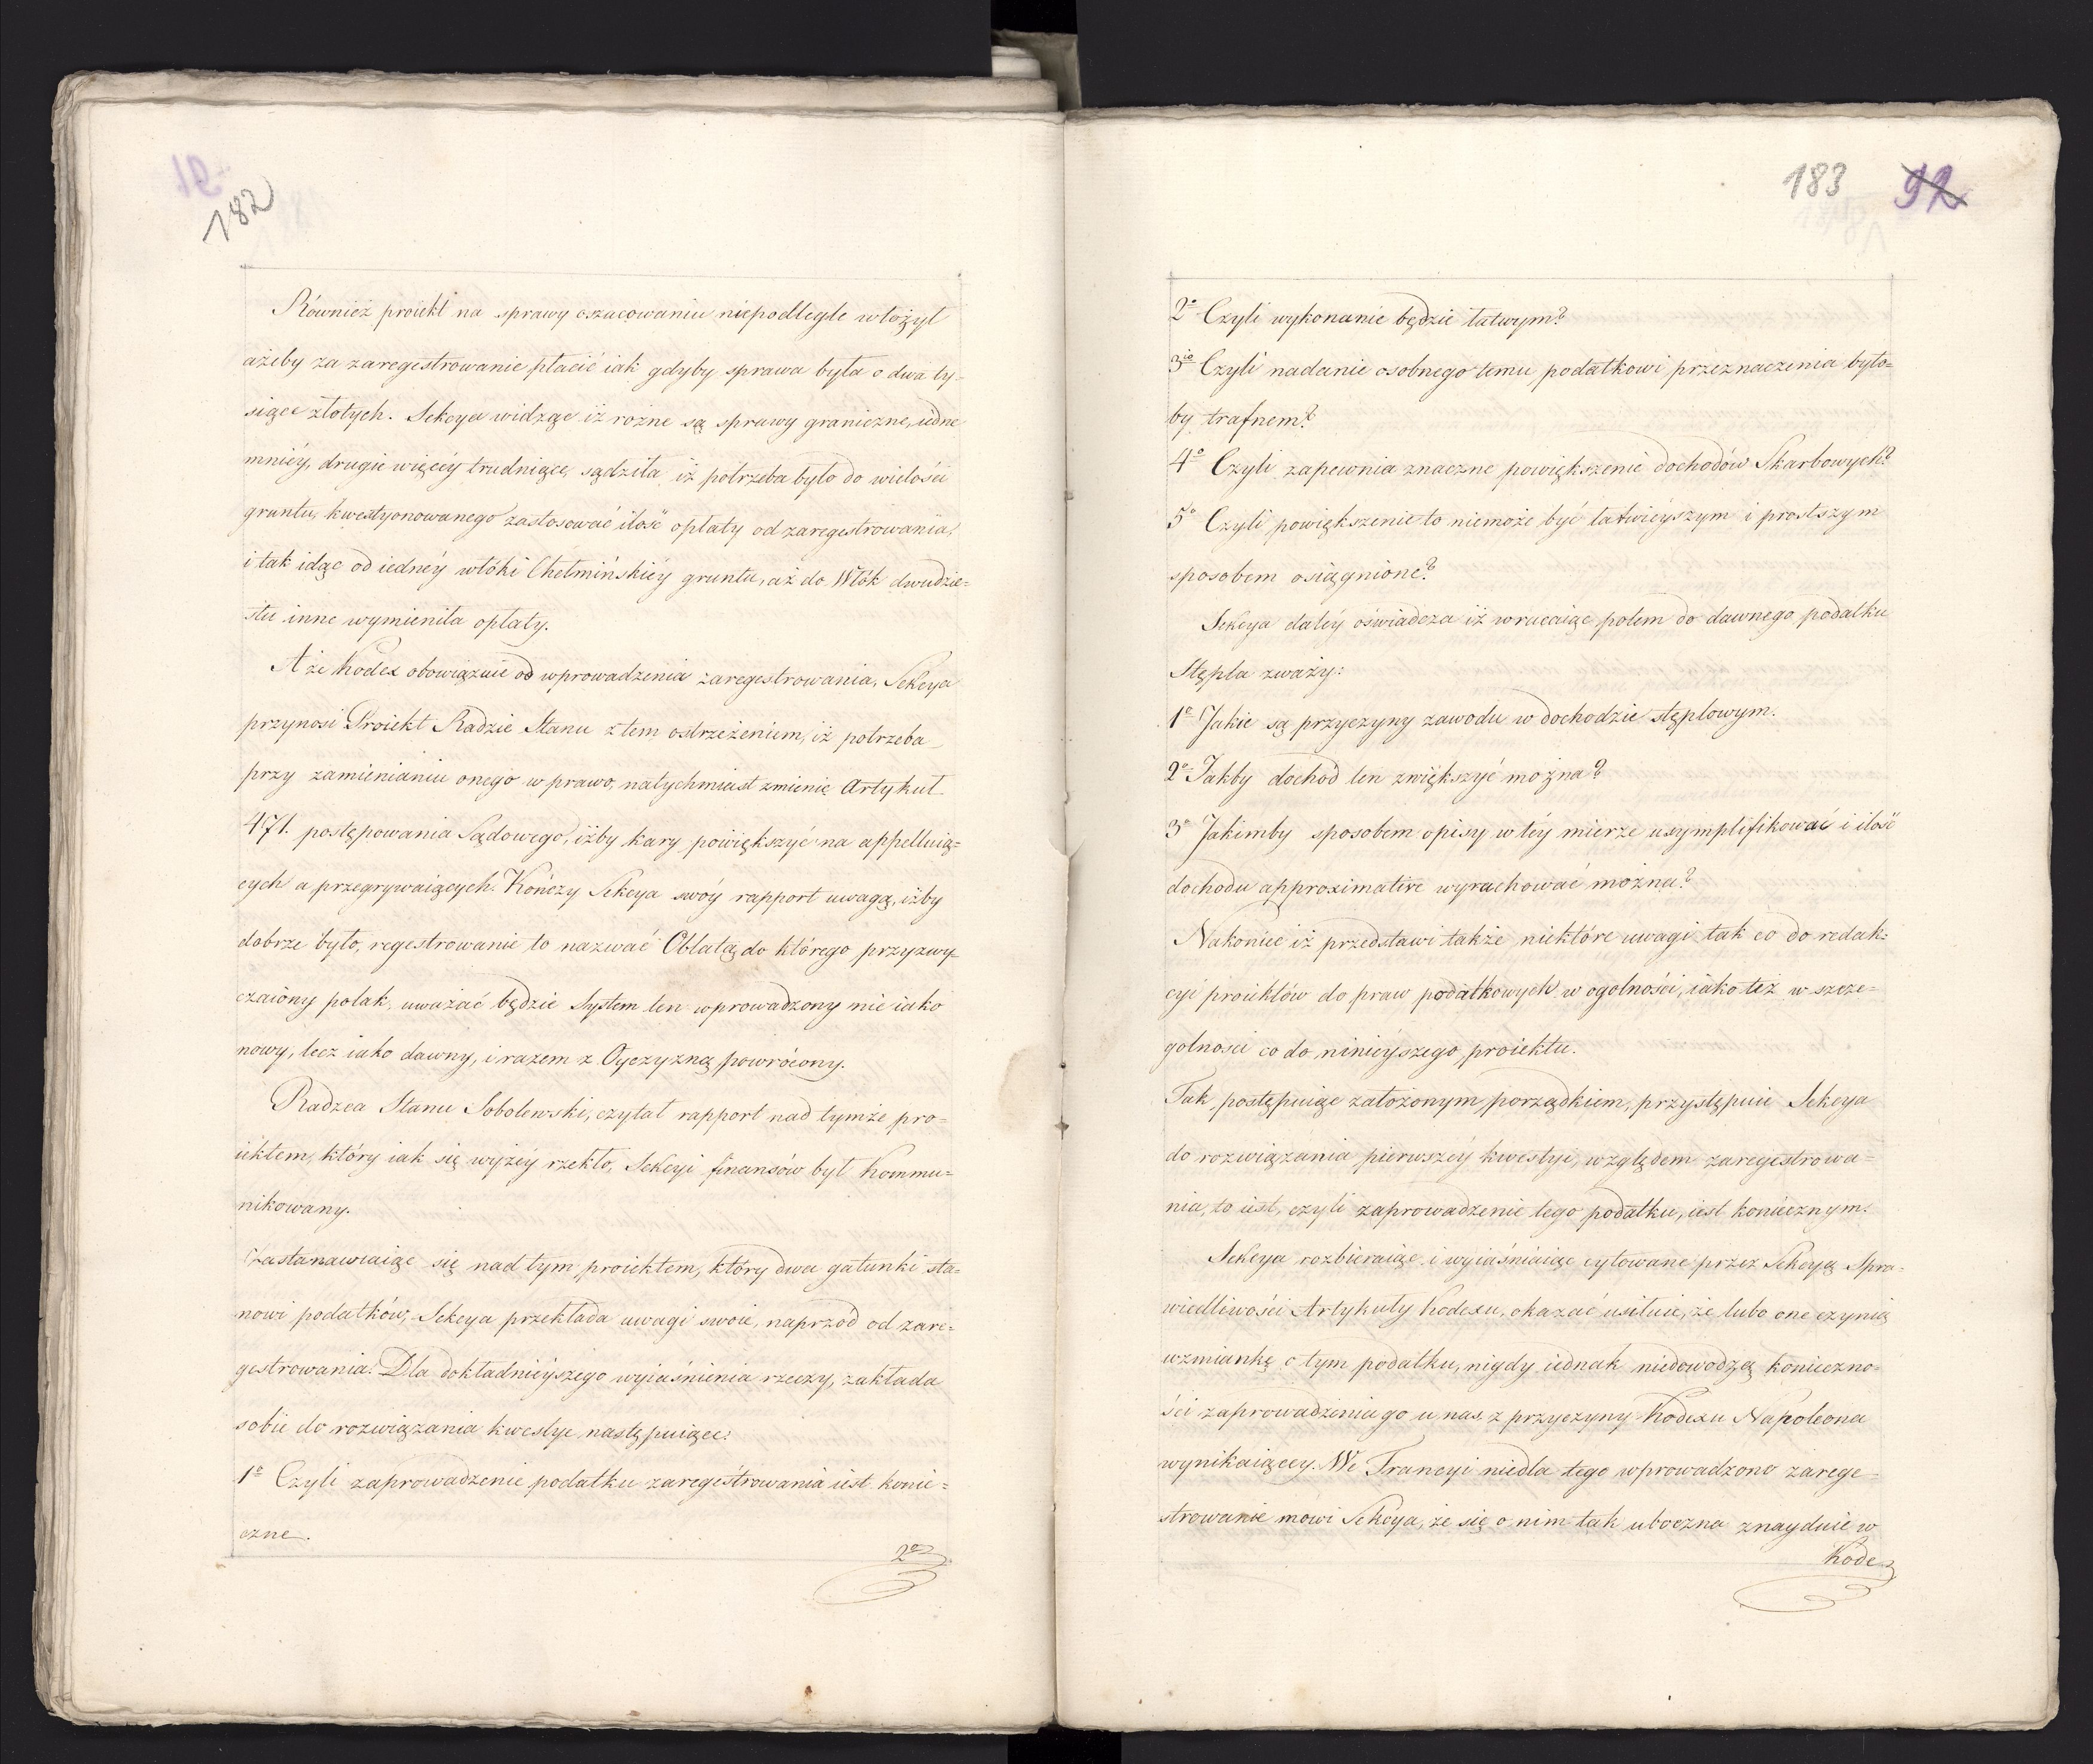 182
Również proiekt na sprawy oszacowaniu niepodległe włożył
ażeby za zaregestrowanie płacić iak gdyby sprawa była o dwa ty-
siące złotych. Sekcya widząc iż rożne są sprawy graniczne, iedne
mniéy, drugie więcéy trudniące, sądziła iż potrzeba było do wielości
gruntu, kwestyonowanego zastosować ilość opłaty od zaregestrowania,
i tak idąc od iednéy włóki Chełmińskiéy gruntu, aż do Włók dwudzie=
stu inne wymieniła opłaty.
A że Kodex obowiązuie od wprowadzenia zaregestrowania, Sekcya
przynosi Proiekt Radzie Stanu z tem ostrzeżeniem, iż potrzeba
przy zamienianiu onego w prawo, natychmiast zmienić Artykuł
471. postępowania Sądowego, iżby kary powiększyć na appelluią=
cych a przegrywaiących. Kończy Sekcya swóy rapport uwagą, iżby
dobrze było, regestrowanie to nazwać Oblatą, do którego przyzwy-
czaiony polak, uważać będzie System ten wprowadzony nie iako
nowy, lecz iako dawny, i razem z Oyczyzną powrócony.
Radzca Stanu Sobolewski, czytał rapport nad tymże pro=
iektem, który iak się wyżéy rzekło, Sekcyi finansów był Kommu=
nikowany.
Zastanawiaiąc się nad tym proiektem, który dwa gatunki sta=
nowi podatków, Sekcya przekłada uwagi swoie, naprzód od zare=
gestrowania. Dla dokładnieyszego wyiaśnienia rzeczy, zakłada
sobie do rozwiązania kwestye następuiące:
1º Czyli zaprowadzenie podatku zaregestrowania iest konie=
czne.
2º
183 92
2º Czyli wykonanie będzie łatwym?
3io Czyli nadanie osobnego temu podatkowi przeznaczenia było=
by trafnem?
4º Czyli zapewnia znaczne powiększenie dochodów Skarbowych?
5º Czyli powiększenie to niemoże być łatwiéyszym i prostszym
sposobem osiągnione?
Sekcya daléy oświadcza iż wracaiąc potem do dawnego podatku
Stępla zważy:
1º Jakie są przyczyny zawodu w dochodzie stęplowym.
2º Jakby dochod ten zwiększyć można?
3º Jakimby sposobem opisy w téy mierze usymplifikować i ilość
dochodu approximative wyrachować można?
Nakoniec iż przedstawi także niektóre uwagi tak co do redak=
cyi proiektów do praw podatkowych w ogolności, iako też w szcze=
golności co do ninieyszego proiektu.
Tak postępuiąc założonym porządkiem, przystępuie Sekcya
do rozwiązania pierwszéy kwestyi, względem zaregestrowa=
nia, to iest, czyli zaprowadzenie tego podatku, iest koniecznym.
Sekcya rozbieraiąc i wyiaśniaiąc cytowane przez Sekcyą Spra=
wiedliwości Artykuły Kodexu, okazać usiłuie, że lubo one czynią
wzmiankę o tym podatku, nigdy iednak niedowodzą konieczno=
ści zaprowadzenia go u nas, z przyczyny Kodexu Napoleona
wynikaiącey. We Francyi niedla tego wprowadzono zarege=
strowanie mowi Sekcya, że się o nim tak uboczna znayduie w
Kode